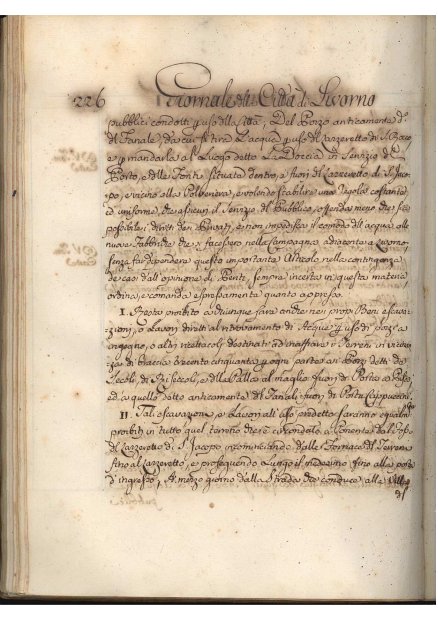 226 Giornale della Città di Livorno
pubblici condotti p uso della Città; Del Pozzo anticamente d.o
del Fanale, da cui si tira L'acqua p uso del Lazzeretto di S. Jacopo
e p mandarla al Luogo detto La Doccia in Servizio del
Porto, e delle Fonti situate dentro, e fuori del Lazzeretto di S. Jaco-
po, e vicino alla Polveriera, e volendo stabilire una regola costante
ed uniforme, che assicuri il Servizio del Pubblico, offenda meno che sia
possibile i diritti dei Privati, e non impedisca il comodo dell'acque alle
nuove Fabbriche che si facessero nella Campagna adiacente a Livorno
senza far dipendere questo importante Articolo nella contingenza
de casi dall'opinione dei Periti, sempre incerta in questa materia
ordina, e comanda espressamente quanto appresso.
I. Resta proibito a chiunque fare anche nei propri Beni escava-
zioni, o Lavori diretti al ritrovamento di Acque p uso di pozzi a
ingegno, o altri recettacoli destinati ad innaffiare i Terreni in vicinan-
za di braccia trecento cinquanta p ogni parte ai Pozzi detti dei
Secoli, di Riseccoli, e della Palla al maglio fuori di Porta a Pisa,
ed a quello detto anticamente del Fanale fuori di Porta Cappuccini
II. Tali escavazioni, e Lavori all'uso predetto saranno egualm.
proibiti in tutto quel terreno che è circondato a Ponente dal Fosso
del Lazzeretto di S. Jacopo incominciando dalle Fornace del
fino al Lazzeretto, e proseguendo Lungo il medesimo fino alla porta
d'ingresso, A mezzo giorno dalla Strada che conduce alla